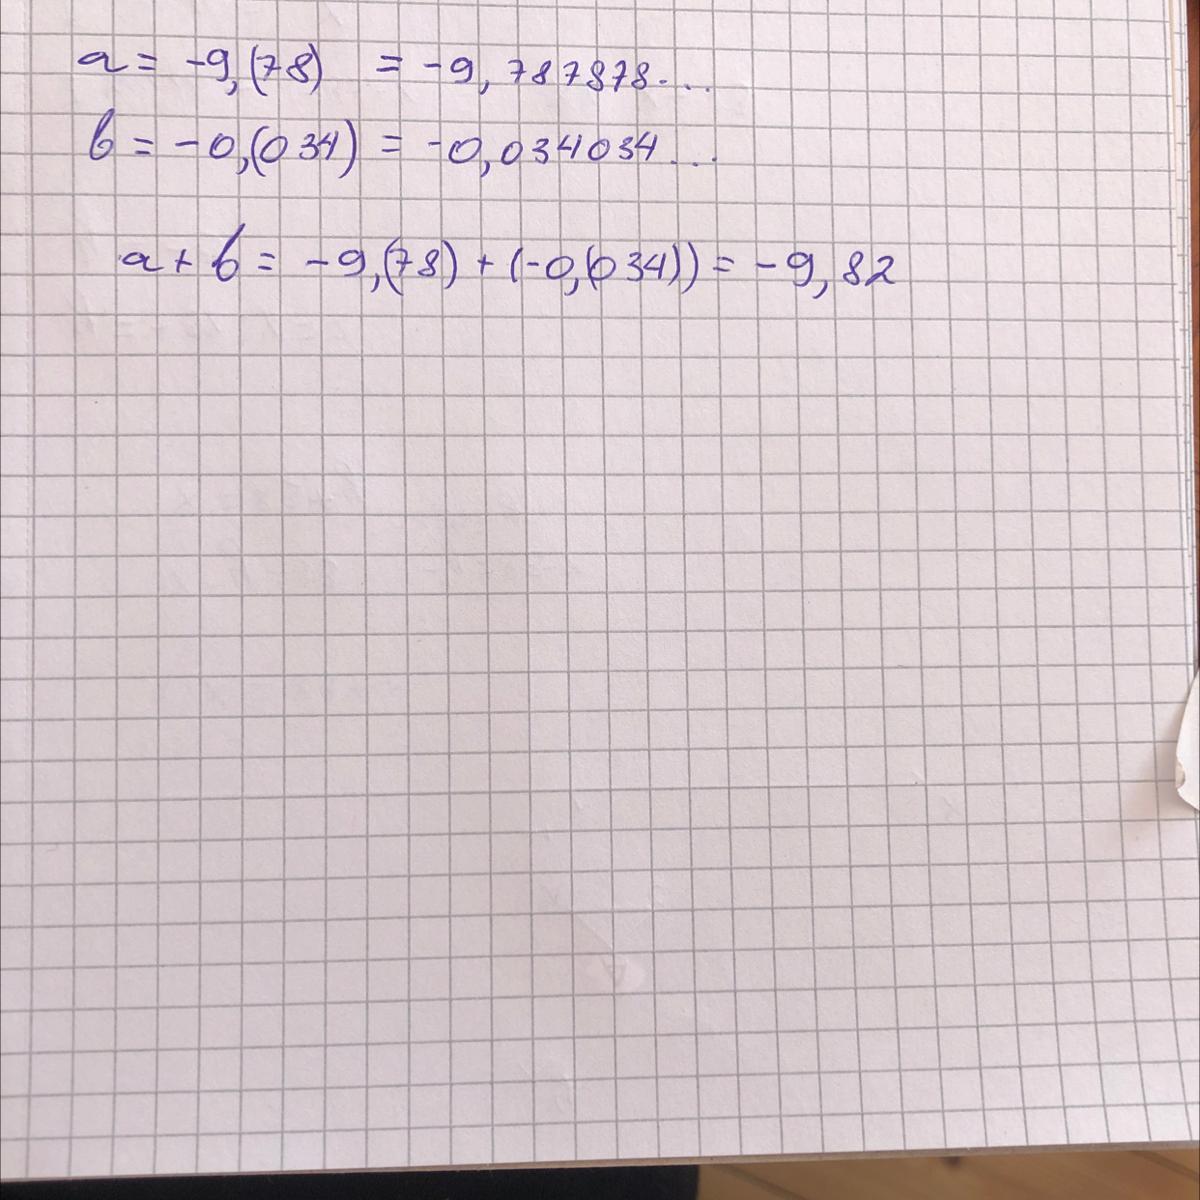 a = -9,(78) = -9,787878...
b = -0,(034) = -0,034034...
a + b = -9,(78) + (-0,(034)) = -9,82